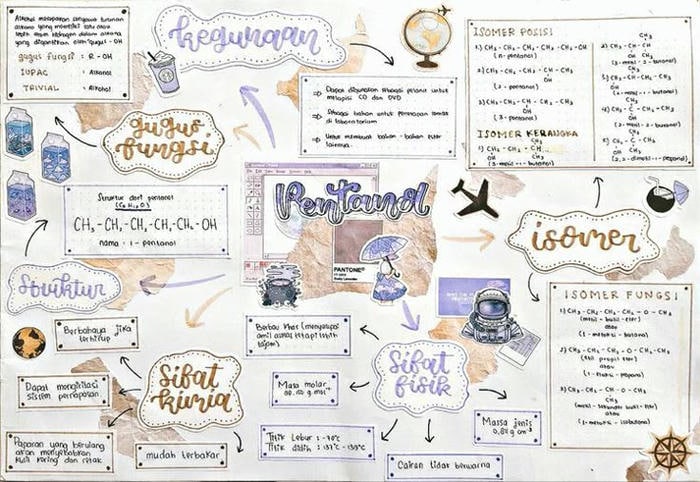 Alkohol merupakan senyawa turunan
alkana yang memiliki satu atau
lebih atom hidrogen dalam alkana
yang digantikan oleh gugus - OH
gugus fungsi : R - OH
IUPAC : Alkanol
TRIVIAL : Alkohol
kegunaan
⇒ Dapat digunakan sebagai pelarut untuk
melapisi CD dan DVD
⇒ Sebagai bahan untuk
di laboratorium
⇒ Untuk membuat bahan - bahan
lainnya.
ISOMER POSISI
1) CH₃ - CH₂ - CH₂ - CH₂ - CH₂ - OH
(n-pentanol)
2) CH₃ - CH₂ - CH₂ - CH - CH₃
OH
(2-pentanol)
3) CH₃ - CH₂ - CH - CH₂ - CH₃
OH
(3-pentanol)
ISOMER KERANGKA
gugus
fungsi
Struktur dari pentanol
(C₅H₁₂O)
CH₃ - CH₂ - CH₂ - CH₂ - CH₂ - OH
nama : 1 - pentanol
Pentanol
PANTONE
isomer
Struktur
ISOMER FUNGSI
1) CH₃ - CH₂ - CH₂ - CH₂ - O - CH₃
(metil - butil - eter)
atau
(1 - metoksi - butana)
2) CH₃ - CH₂ - CH₂ - O - CH₂ - CH₃
(etil propil eter)
atau
(1 - etoksi - propana)
3) CH₃ - CH₂ - CH - O - CH₃
CH₃
(metil - sekunder butil - eter)
atau
(2 - metoksi - isobutana)
Berbahaya jika
terhirup
Dapat mengiritasi
sistem pernapasan
Paparan yang berulang
akan menyebabkan
kulit kering dan retak
mudah terbakar
Sifat
kimia
Berbau khas (menyerupai
amil alkohol tetapi lebih
tajam)
Masa molar
88,150 g mol⁻¹
Titik lebur : -78°C
Titik didih : 137° - 139°C
Sifat
fisik
Massa jenis
0,84 g cm⁻³
Cairan tidak berwarna